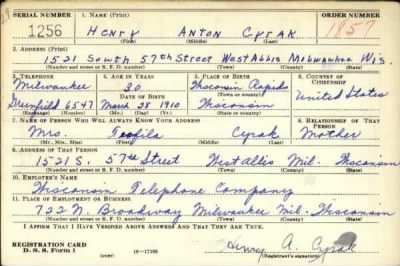 SERIAL NUMBER 1. NAME (Print) ORDER NUMBER
1256 HENRY ANTON CYRAK 1857
(First) (Middle) (Last)
2. ADDRESS (Print)
1521 South 57th Street West Allis Milwaukee Wis.
(Number and street or R. F. D. number) (Town) (County) (State)
3. TELEPHONE 4. AGE IN YEARS 5. PLACE OF BIRTH 6. COUNTRY OF CITIZENSHIP
Milwaukee 30 Wisconsin Rapids
DATE OF BIRTH (Town or county) United States
Greenfield 6547 March 28 1910 Wisconsin
(Exchange) (Number) (Mo.) (Day) (Yr.) (State or country)
7. NAME OF PERSON WHO WILL ALWAYS KNOW YOUR ADDRESS 8. RELATIONSHIP OF THAT PERSON
Mrs. Teofila Cyrak Mother
(Mr., Mrs., Miss) (First) (Middle) (Last)
9. ADDRESS OF THAT PERSON
1521 S. 57th Street West Allis Mil. Wisconsin
(Number and street or R. F. D. number) (Town) (County) (State)
10. EMPLOYER'S NAME
Wisconsin Telephone Company
11. PLACE OF EMPLOYMENT OR BUSINESS
722 N. Broadway Milwaukee Mil. Wisconsin
(Number and street or R. F. D. number) (Town) (County) (State)
I AFFIRM THAT I HAVE VERIFIED ABOVE ANSWERS AND THAT THEY ARE TRUE.
REGISTRATION CARD
D. S. S. Form 1 (over) 16—17105 Henry A. Cyrak
(Registrant's signature)